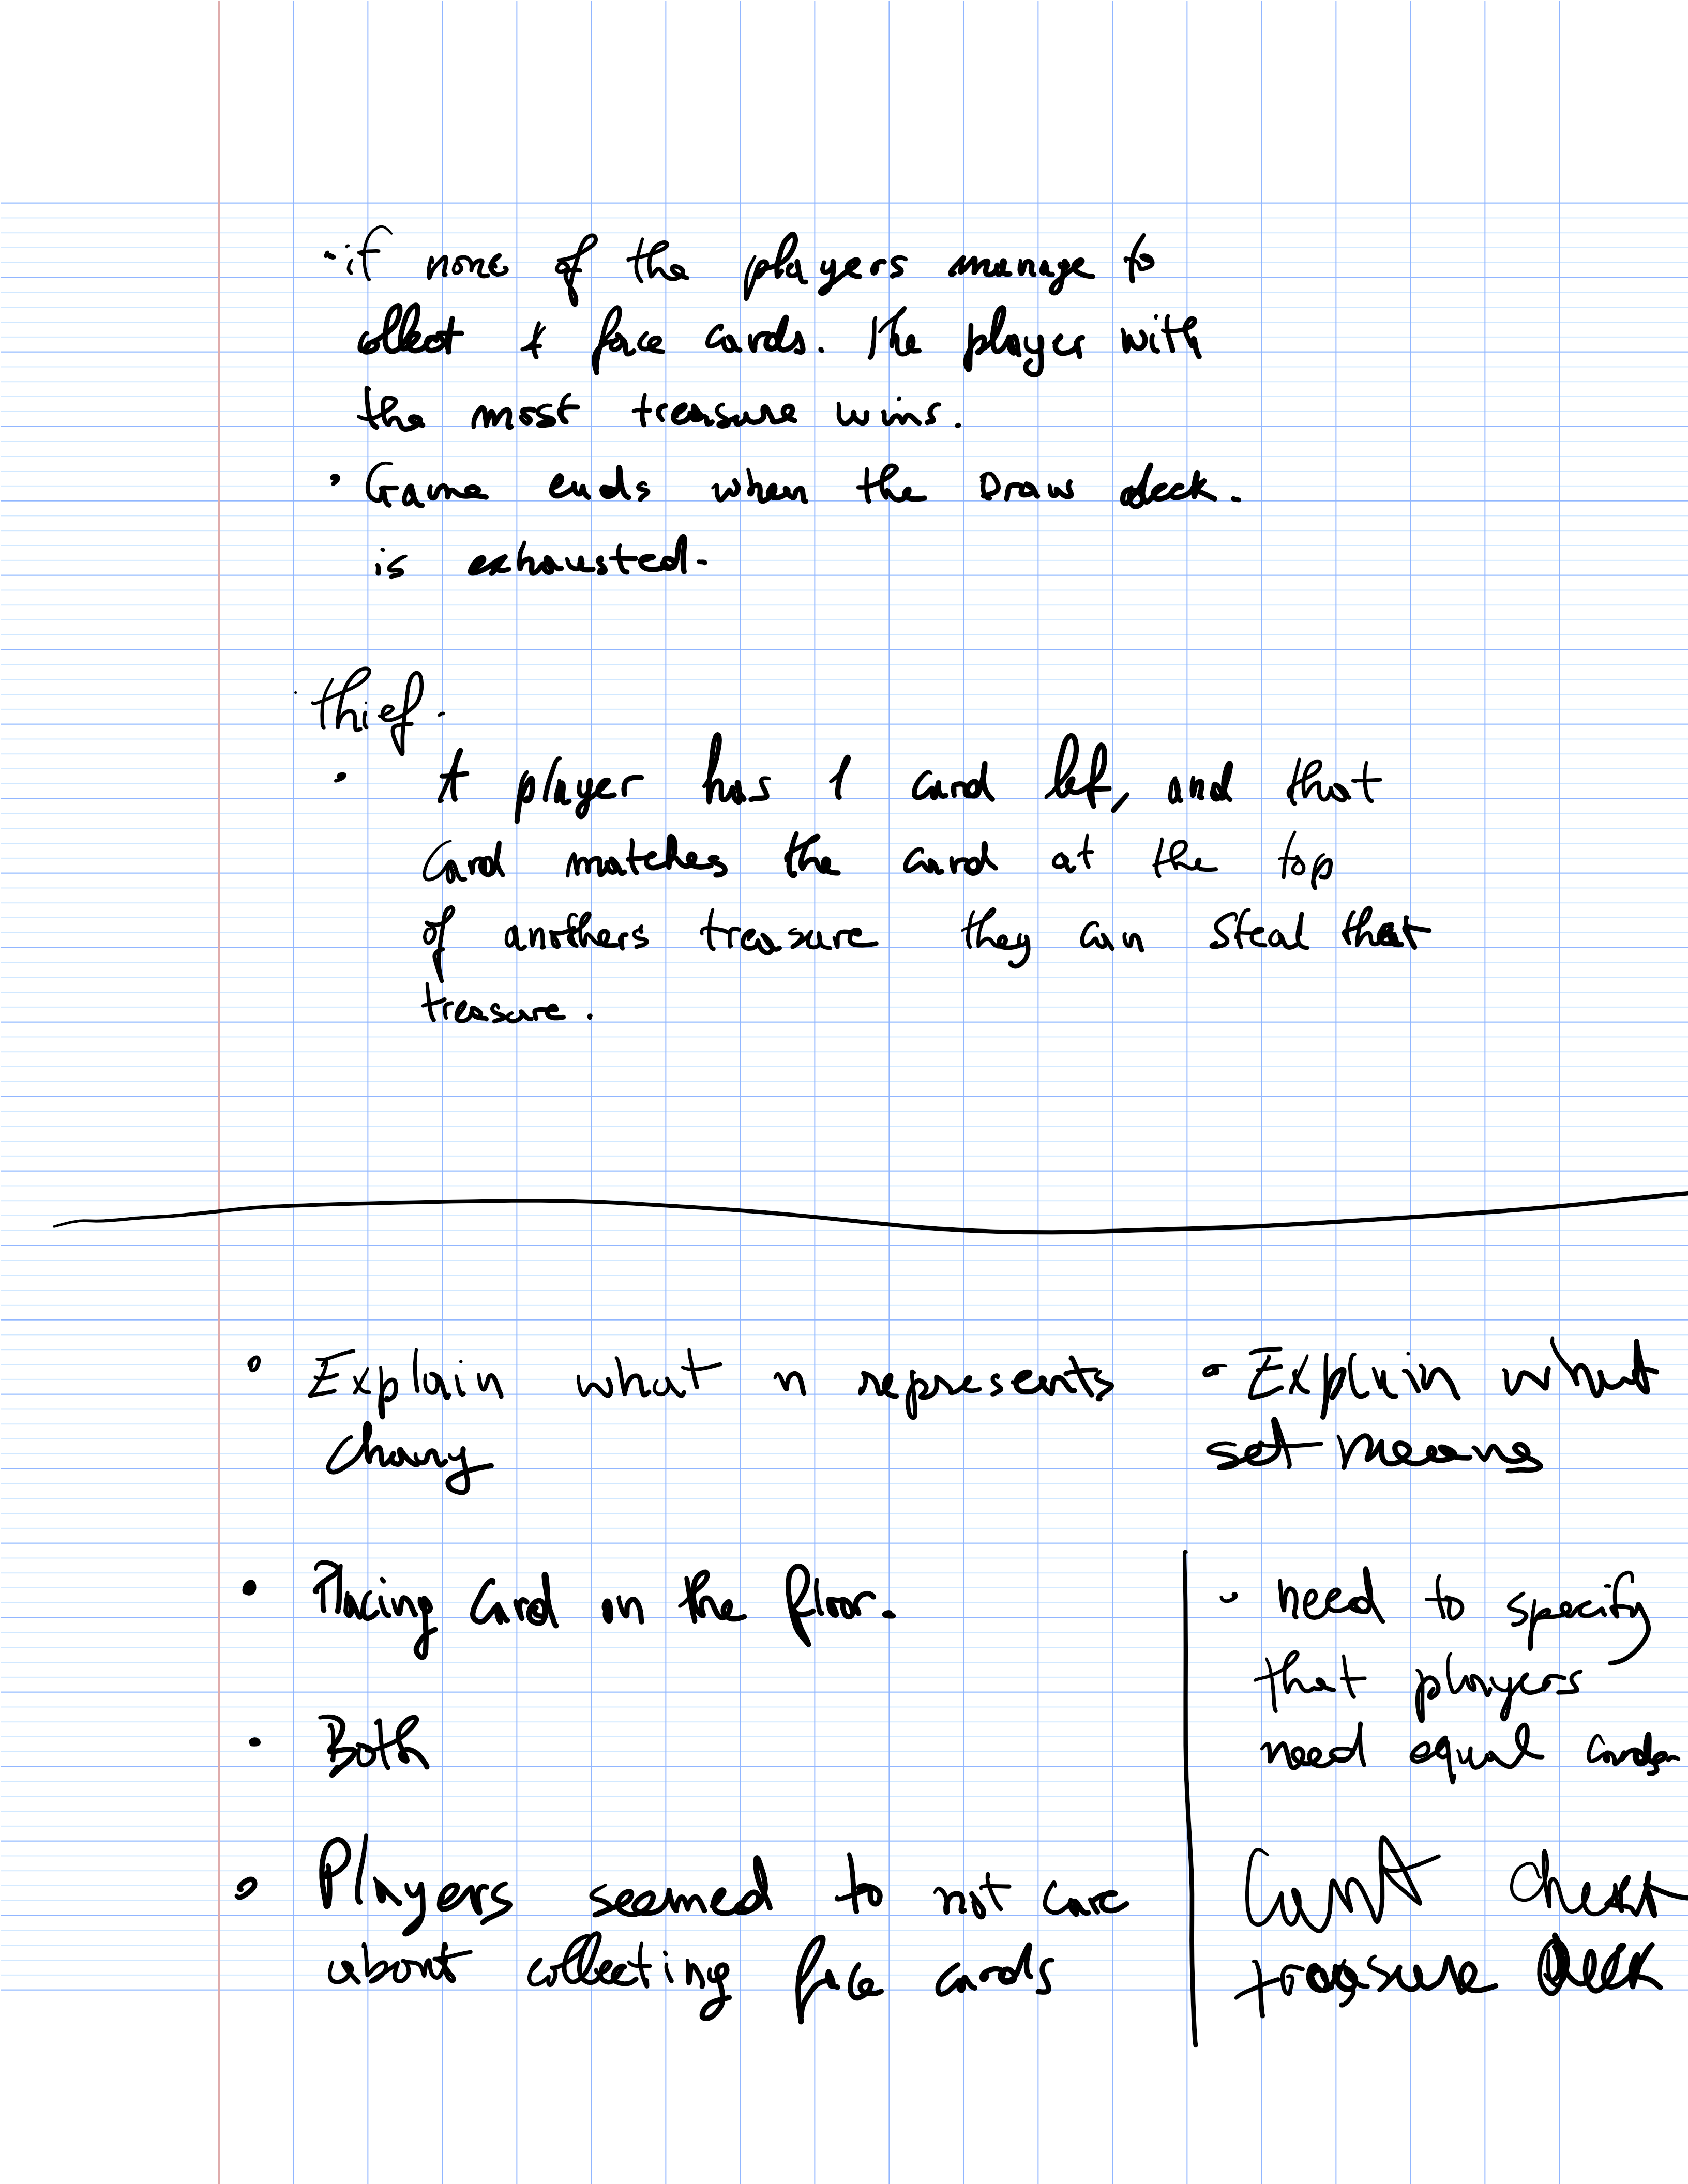 ·if none of the players manage to
collect 4 face cards. The player with
the most treasure wins.
· Game ends when the Draw deck.
is exhausted.
thief.
· A player has 1 card left, and that
Card matches the card at the top
of anothers treasure they can steal that
treasure.
• Explain what n represents
• Explain what
set means
• Placing Card on the floor.
• Both
• Players seemed to not care
about collecting face cards
• need to specify
that players
need equal cards
Can't check
treasure Deck